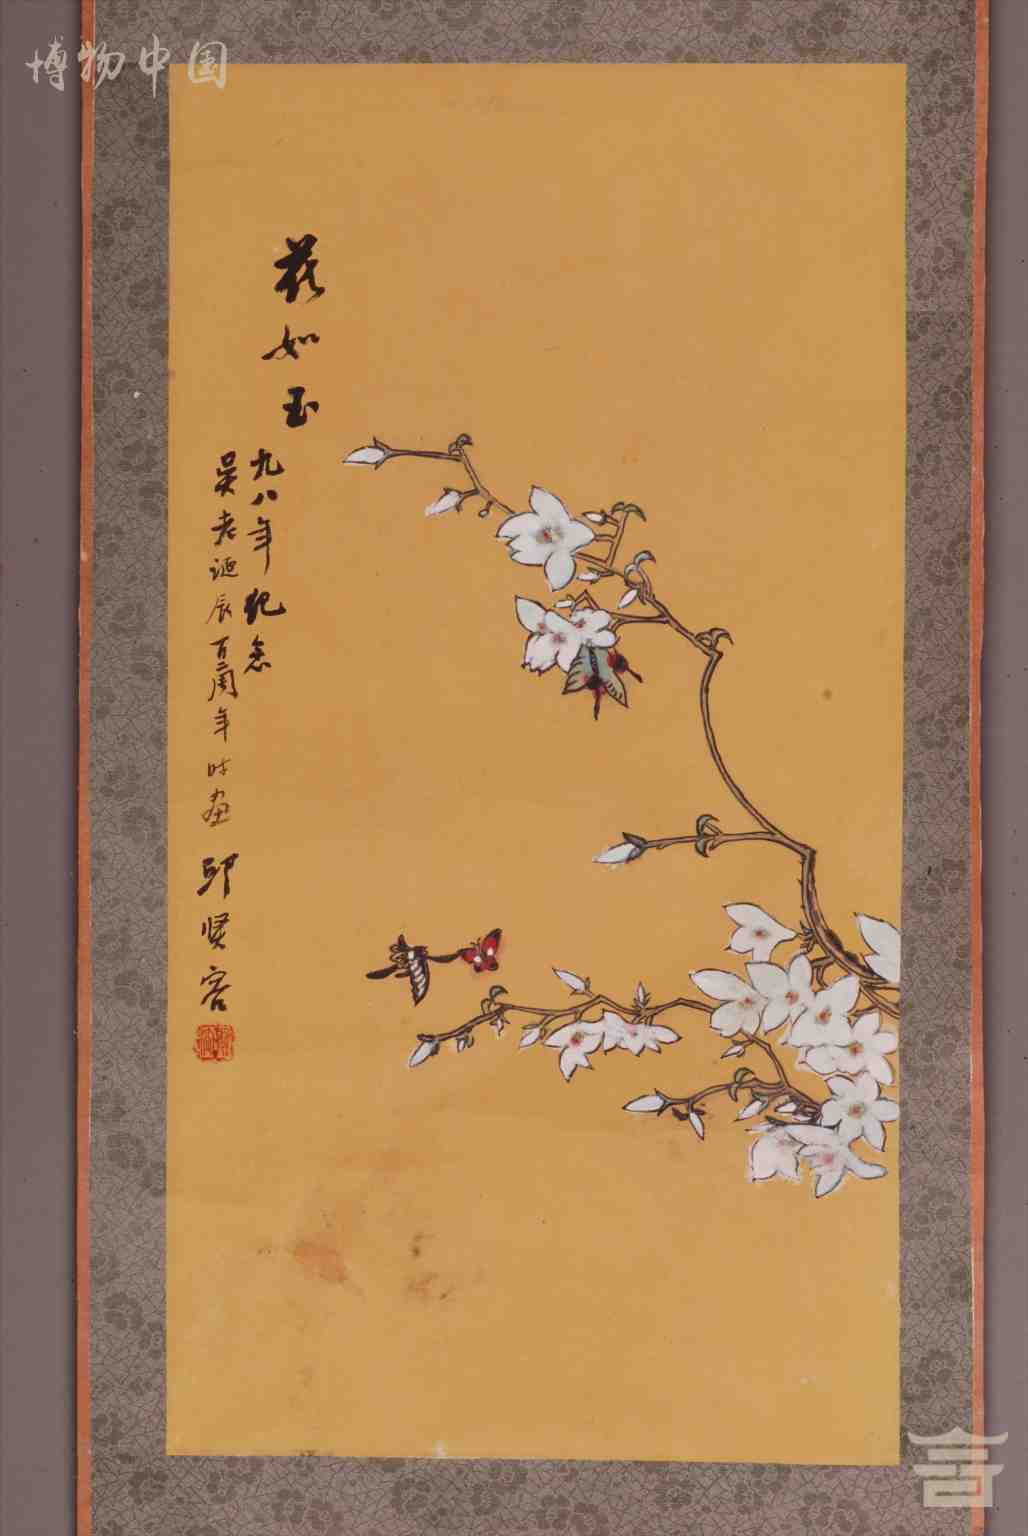 博物中国
花如玉
九八年纪念
吴老诞辰百二周年时画
邱贤容